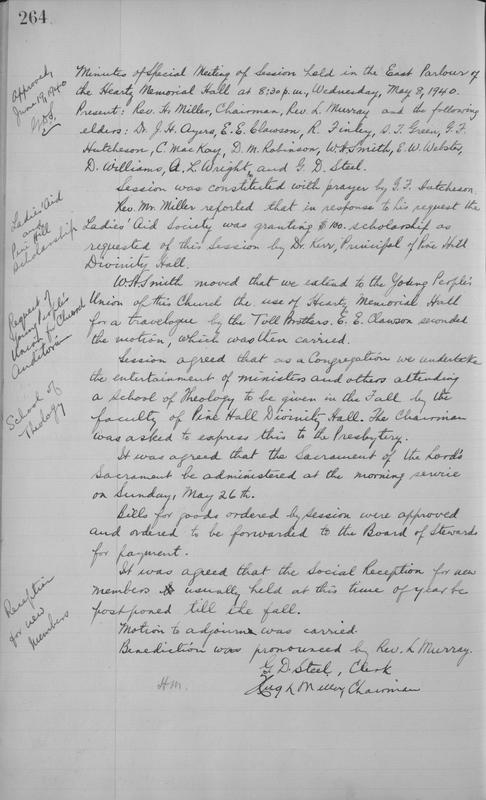 264
Approved,
June 19, 1940
Minutes of Special Meeting of Session held in the East Parlour of
the Hearty Memorial Hall at 8:30 p.m., Wednesday, May 8, 1940.
Present: Rev. H. Miller, Chairman, Rev. L. Murray and the following
elders: Dr. J. H. Ayers, E. E. Clawson, R. Finley, S. T. Green, G. F.
Hutcheson, C. MacKay, D. M. Robinson, W. H. Smith, E. W. Webster,
D. Williams, A. L. Wright, and G. D. Steel.
Session was constituted with prayer by G. F. Hutcheson.
Ladies' Aid
and
Pine Hill
Scholarship
Rev. Mr. Miller reported that in response to his request the
Ladies' Aid Society was granting $100. scholarship as
requested of this Session by Dr. Kerr, Principal of Pine Hill
Divinity Hall.
Request of
Young People's
Union for Church
Auditorium
W. H. Smith moved that we extend to the Young People's
Union of this Church the use of Hearty Memorial Hall
for a travelogue by the Toll Brothers. E. E. Clawson seconded
the motion, which was then carried.
School of
Theology
Session agreed that as a Congregation we undertake
the entertainment of ministers and others attending
a School of Theology to be given in the Fall by the
faculty of Pine Hall Divinity Hall. The Chairman
was asked to express this to the Presbytery.
It was agreed that the Sacrament of the Lord's
Sacrament be administered at the morning service
on Sunday, May 26th.
Bills for goods ordered by Session were approved
and ordered to be forwarded to the Board of Stewards
for payment.
Reception
for new
members
It was agreed that the Social Reception for new
members usually held at this time of year be
postponed till the fall.
Motion to adjourn was carried.
Benediction was pronounced by Rev. L. Murray.
G. D. Steel, Clerk
H.M.
Hugh Miller, Chairman